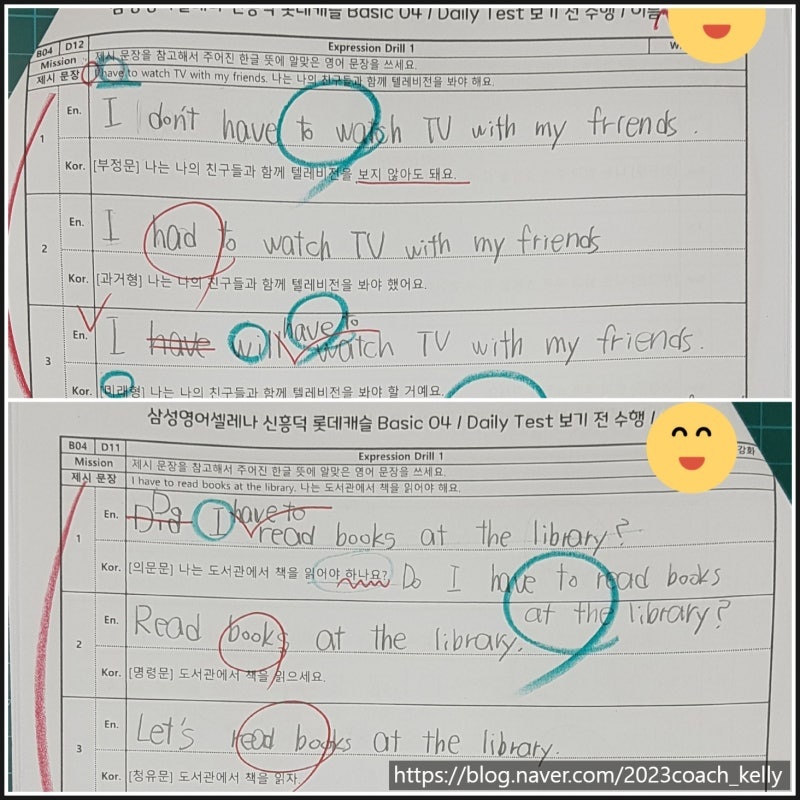 Basic 04 / Daily Test 보기 전 수행 / 이름
B04 D12 Expression Drill 1
Mission 제시 문장을 참고해서 주어진 한글 뜻에 알맞은 영어 문장을 쓰세요.
제시 문장 I have to watch TV with my friends. 나는 나의 친구들과 함께 텔레비전을 봐야 해요.
1 En. I don't have to watch TV with my friends.
Kor. [부정문] 나는 나의 친구들과 함께 텔레비전을 보지 않아도 돼요.
2 En. I had to watch TV with my friends
Kor. [과거형] 나는 나의 친구들과 함께 텔레비전을 봐야 했어요.
have to
3 En. I have will watch TV with my friends.
Kor. [미래형] 나는 나의 친구들과 함께 텔레비전을 봐야 할 거예요.
삼성영어셀레나 신흥덕 롯데캐슬 Basic 04 / Daily Test 보기 전 수행 /
B04 D11 Expression Drill 1 강화
Mission 제시 문장을 참고해서 주어진 한글 뜻에 알맞은 영어 문장을 쓰세요.
제시 문장 I have to read books at the library. 나는 도서관에서 책을 읽어야 해요.
Do have to
1 En. Did I read books at the library?
Kor. [의문문] 나는 도서관에서 책을 읽어야 하나요? Do I have to read books
at the library?
2 En. Read books at the library.
Kor. [명령문] 도서관에서 책을 읽으세요.
3 En. Let's read books at the library.
Kor. [청유문] 도서관에서 책을 읽자.
https://blog.naver.com/2023coach_kelly